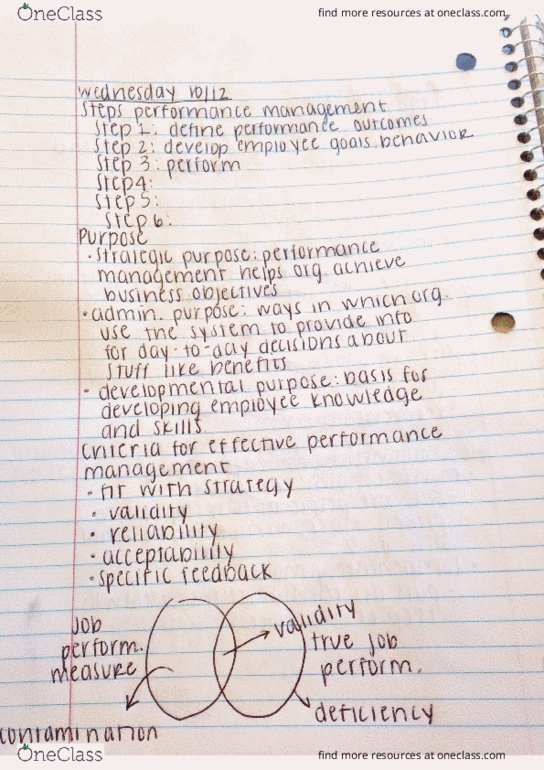 OneClass
find more resources at oneclass.com
wednesday 10/12
Steps performance management
Step 1: define performance outcomes
Step 2: develop employee goals behavior
Step 3: perform
Step4:
Step5:
Step 6:
Purpose
• strategic purpose: performance
management helps org achieve
business objectives
• admin. purpose: ways in which org.
use the system to provide info
for day-to-day decisions about
stuff like benefits
• developmental purpose: basis for
developing employee knowledge
and skills
Criteria for effective performance
management
• fit with strategy
• validity
• reliability
• acceptability
• specific feedback
job
perform.
measure
validity
true job
perform.
deficiency
contamination
OneClass
find more resources at oneclass.com